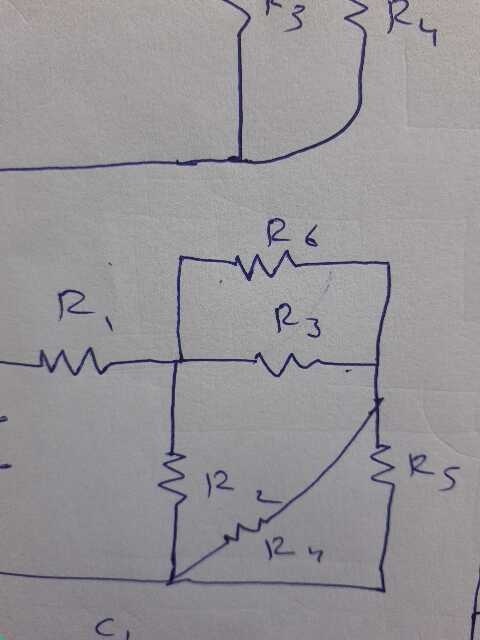 R3 R4
R6
R1 R3
R2 R5
R4
C1